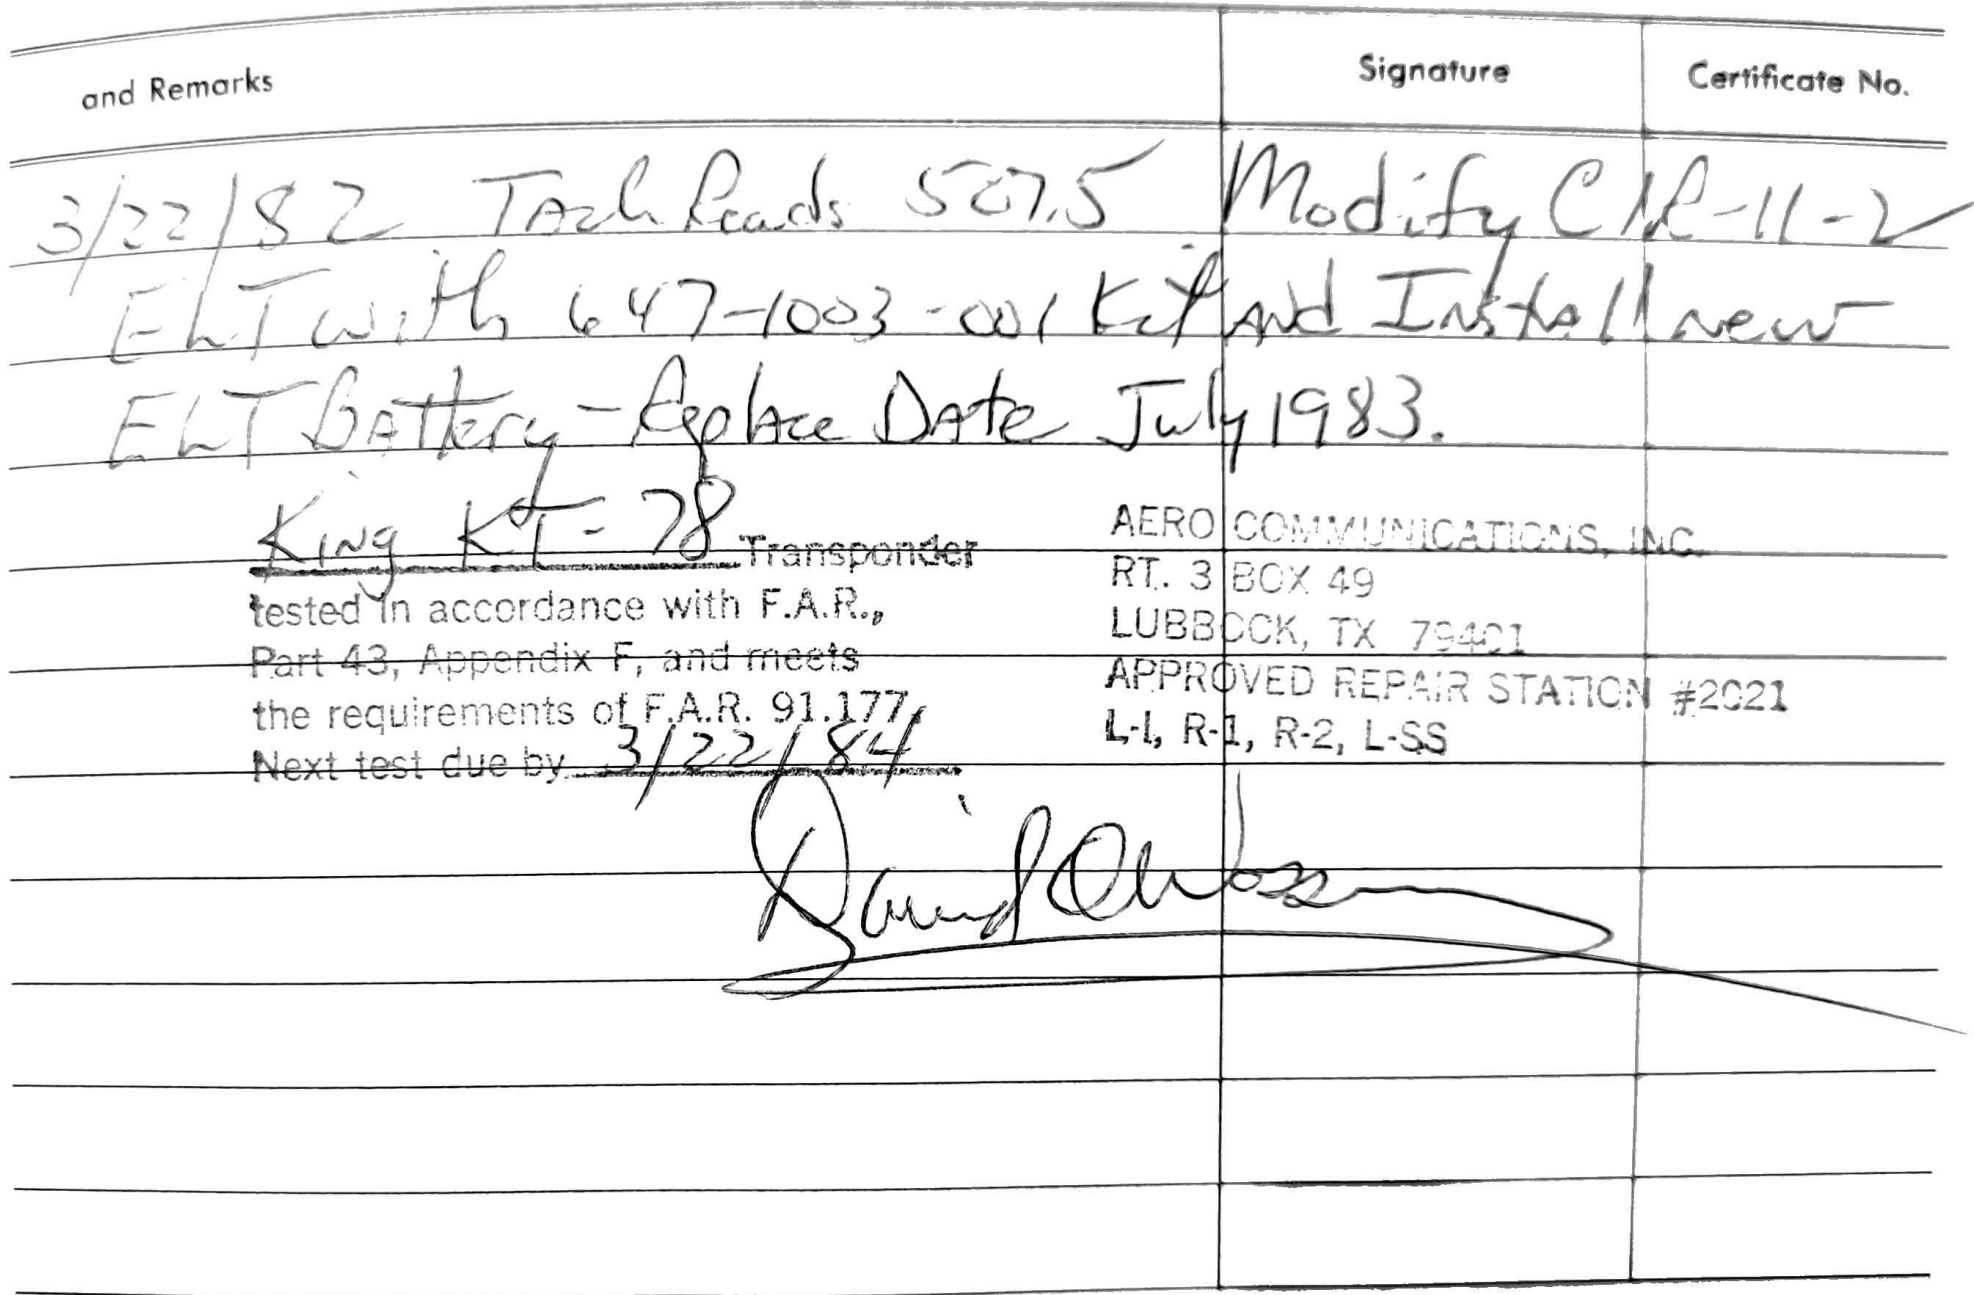 and Remarks Signature Certificate No.
3/22/82 Tach Reads 507.5 Modify CIR-11-2
ELT with 647-1003-001 Kit And Install new
ELT Battery - Replace Date July 1983.
King KT-78 Transponder
tested in accordance with F.A.R.,
Part 43, Appendix F, and meets
the requirements of F.A.R. 91.177,
Next test due by 3/22/84
AERO COMMUNICATIONS, INC.
RT. 3 BOX 49
LUBBOCK, TX 79401
APPROVED REPAIR STATION #2021
L-1, R-1, R-2, L-SS
David